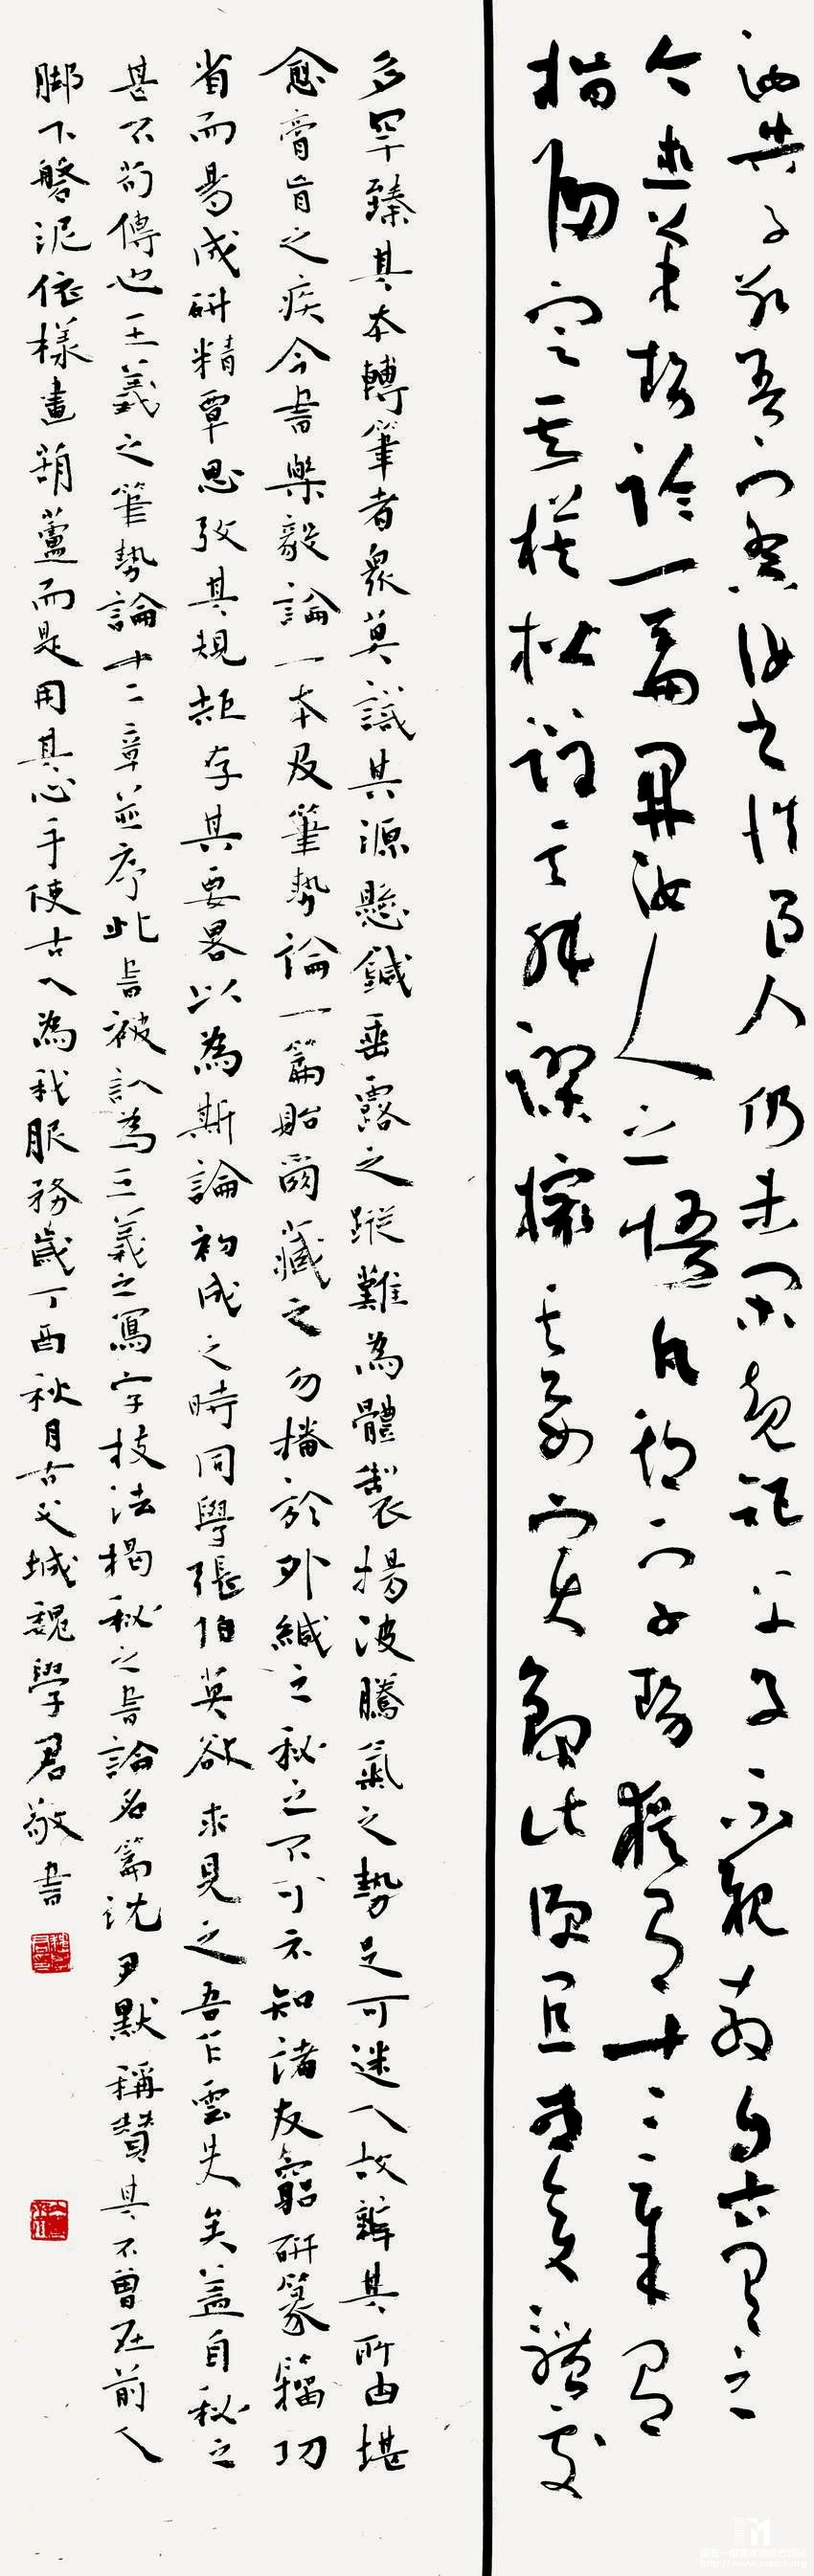 子敬吾察汝書性過人仍未閑規矩父不親教自古有之
今述筆勢論一篇開汝人之悟凡斯字勢猶有十二章有
指歸定其模詳其舛謬撮其要實錄此便宜或變體處
多罕臻其本轉筆者衆莫識其源懸鍼垂露之蹤難為體製揚波騰氣之勢足可迷人故辨其所由堪
愈膏肓之疾今書樂毅論一本及筆勢論一篇貽爾藏之勿播於外緘之秘之不可示知諸友窮研篆籀功
省而易成研精覃思攷其規矩存其要畧以為斯論初成之時同學張伯英欲求見之吾乍雲失矣蓋自秘之
甚不苟傳也王羲之筆勢論十二章並序此書被認為王羲之寫字技法揭秘之書論名篇沈尹默稱贊其不曾在前人
脚下盤泥依樣畫葫蘆而是用其心手使古人為我服務歲丁酉秋月古父城魏學君敬書